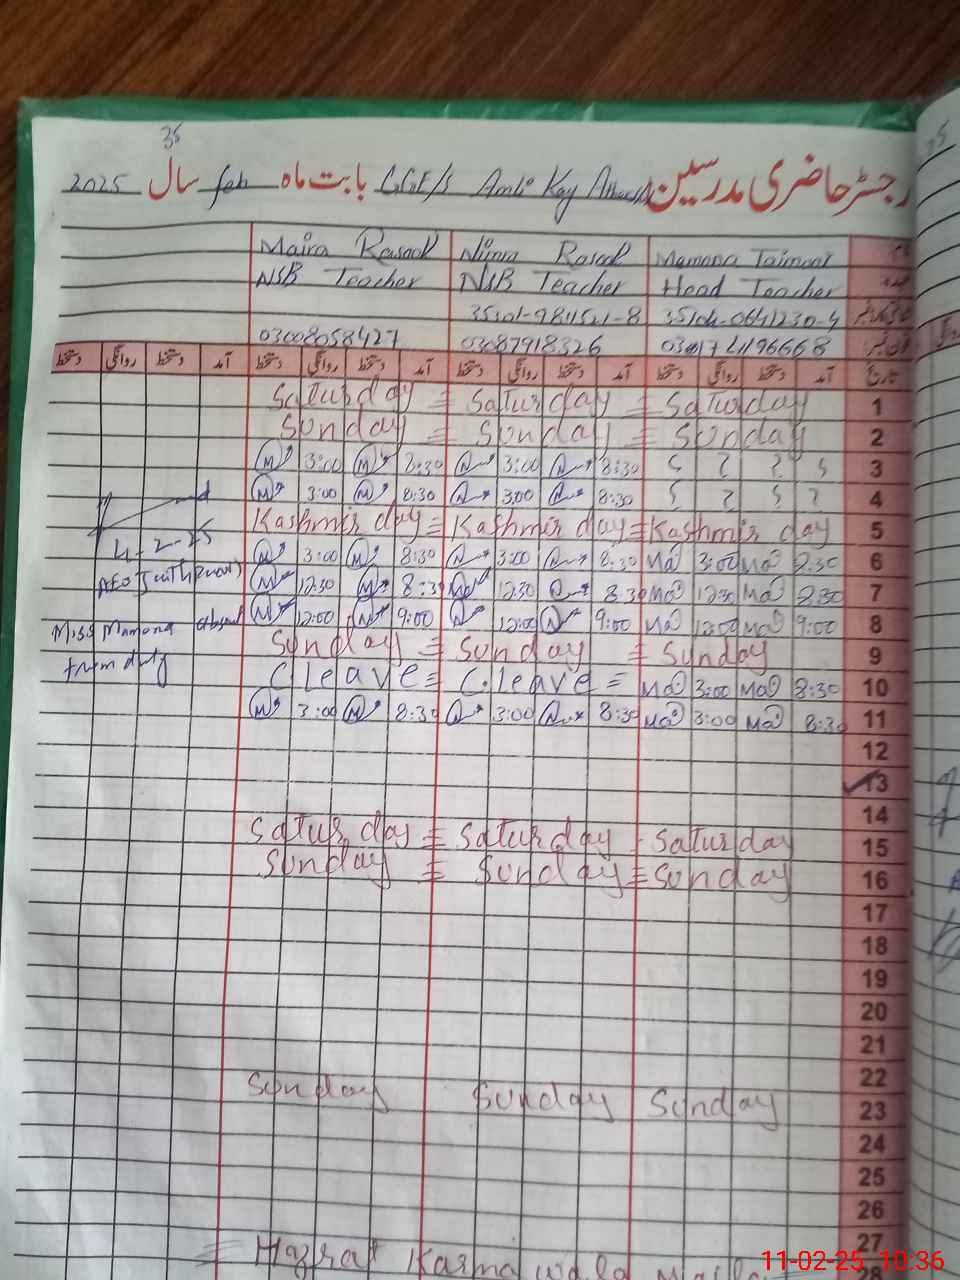 35
رجسٹر حاضری مدرسین GGE/S بابت ماہ feb سال 2025
Maira Rasool Nimra Rasool Mamona Taimoor
NSB Teacher NSB Teacher Head Teacher
35101-9811521-8 35104-0641230-4
03008058427 03087918326
تاریخ آمد دستخط روانگی دستخط آمد دستخط روانگی دستخط آمد دستخط روانگی دستخط آمد دستخط روانگی دستخط
Saturday = Saturday = Saturday 1
Sunday = Sunday = Sunday 2
M 3:00 M 8:30 3:00 8:30 ؟ ؟ ؟ ؟ 3
M 3:00 M 8:30 3:00 8:30 ؟ ؟ ؟ ؟ 4
Kashmir day = Kashmir day = Kashmir day 5
4-2-25 M 3:00 M 8:30 3:00 8:30 Ma 3:00 Ma 8:30 6
AEO M 12:30 M 8:30 12:30 8:30 Ma 12:30 Ma 8:30 7
Miss Mamona M 12:00 M 9:00 12:00 9:00 Ma 12:00 Ma 9:00 8
from duty Sunday = Sunday = Sunday 9
C Leave = C. Leave = Ma 3:00 Ma 8:30 10
M 3:00 M 8:30 3:00 8:30 Ma 3:00 Ma 8:30 11
12
13
14
Saturday = Saturday - Saturday 15
Sunday = Sunday = Sunday 16
17
18
19
20
21
22
Sunday Sunday Sunday 23
24
25
26
27
= Hazrat Karma wala 28
11-02-25 10:36